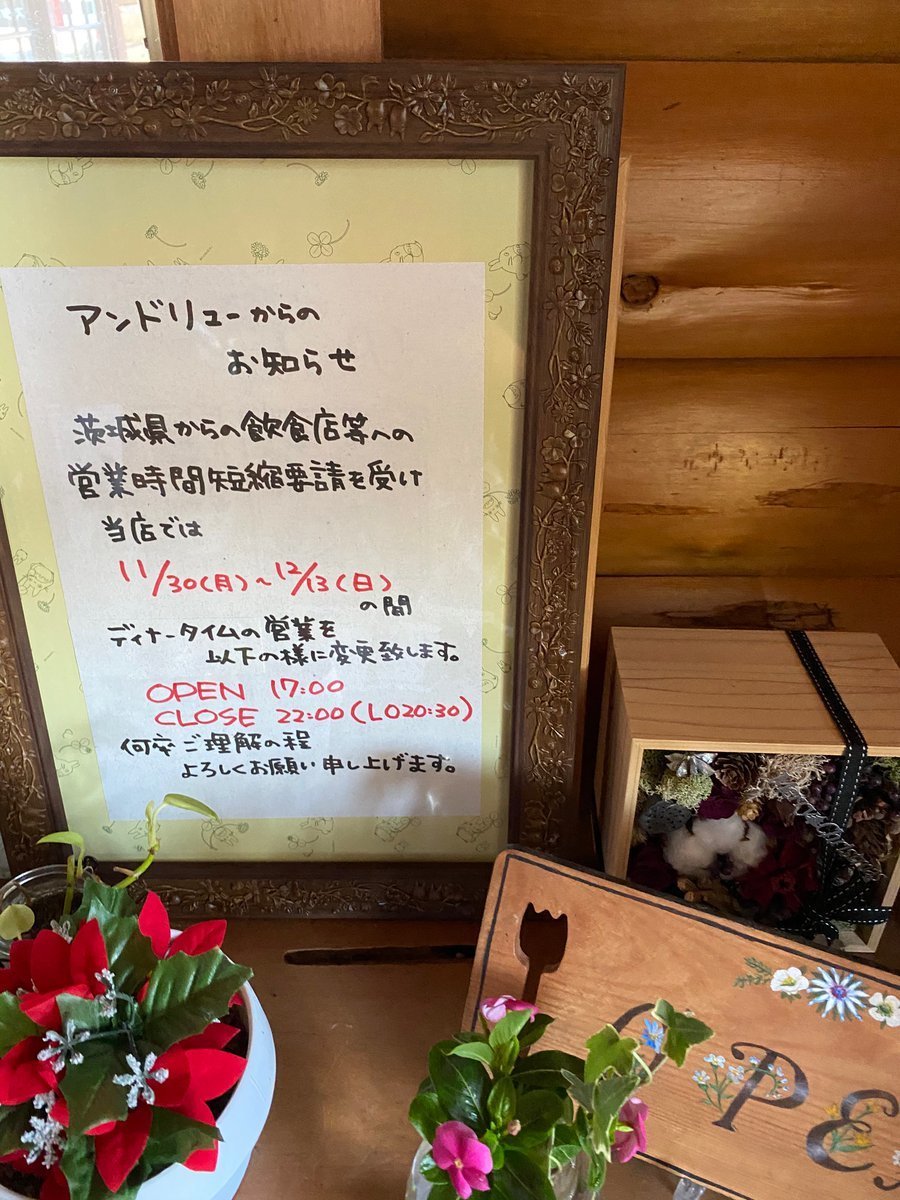 アンドリューからの
お知らせ
茨城県からの飲食店等への
営業時間短縮要請を受け
当店では
11/30(月)~12/13(日)
の間
ディナータイムの営業を
以下の様に変更致します。
OPEN 17:00
CLOSE 22:00(LO20:30)
何卒ご理解の程
よろしくお願い申し上げます。
OPE